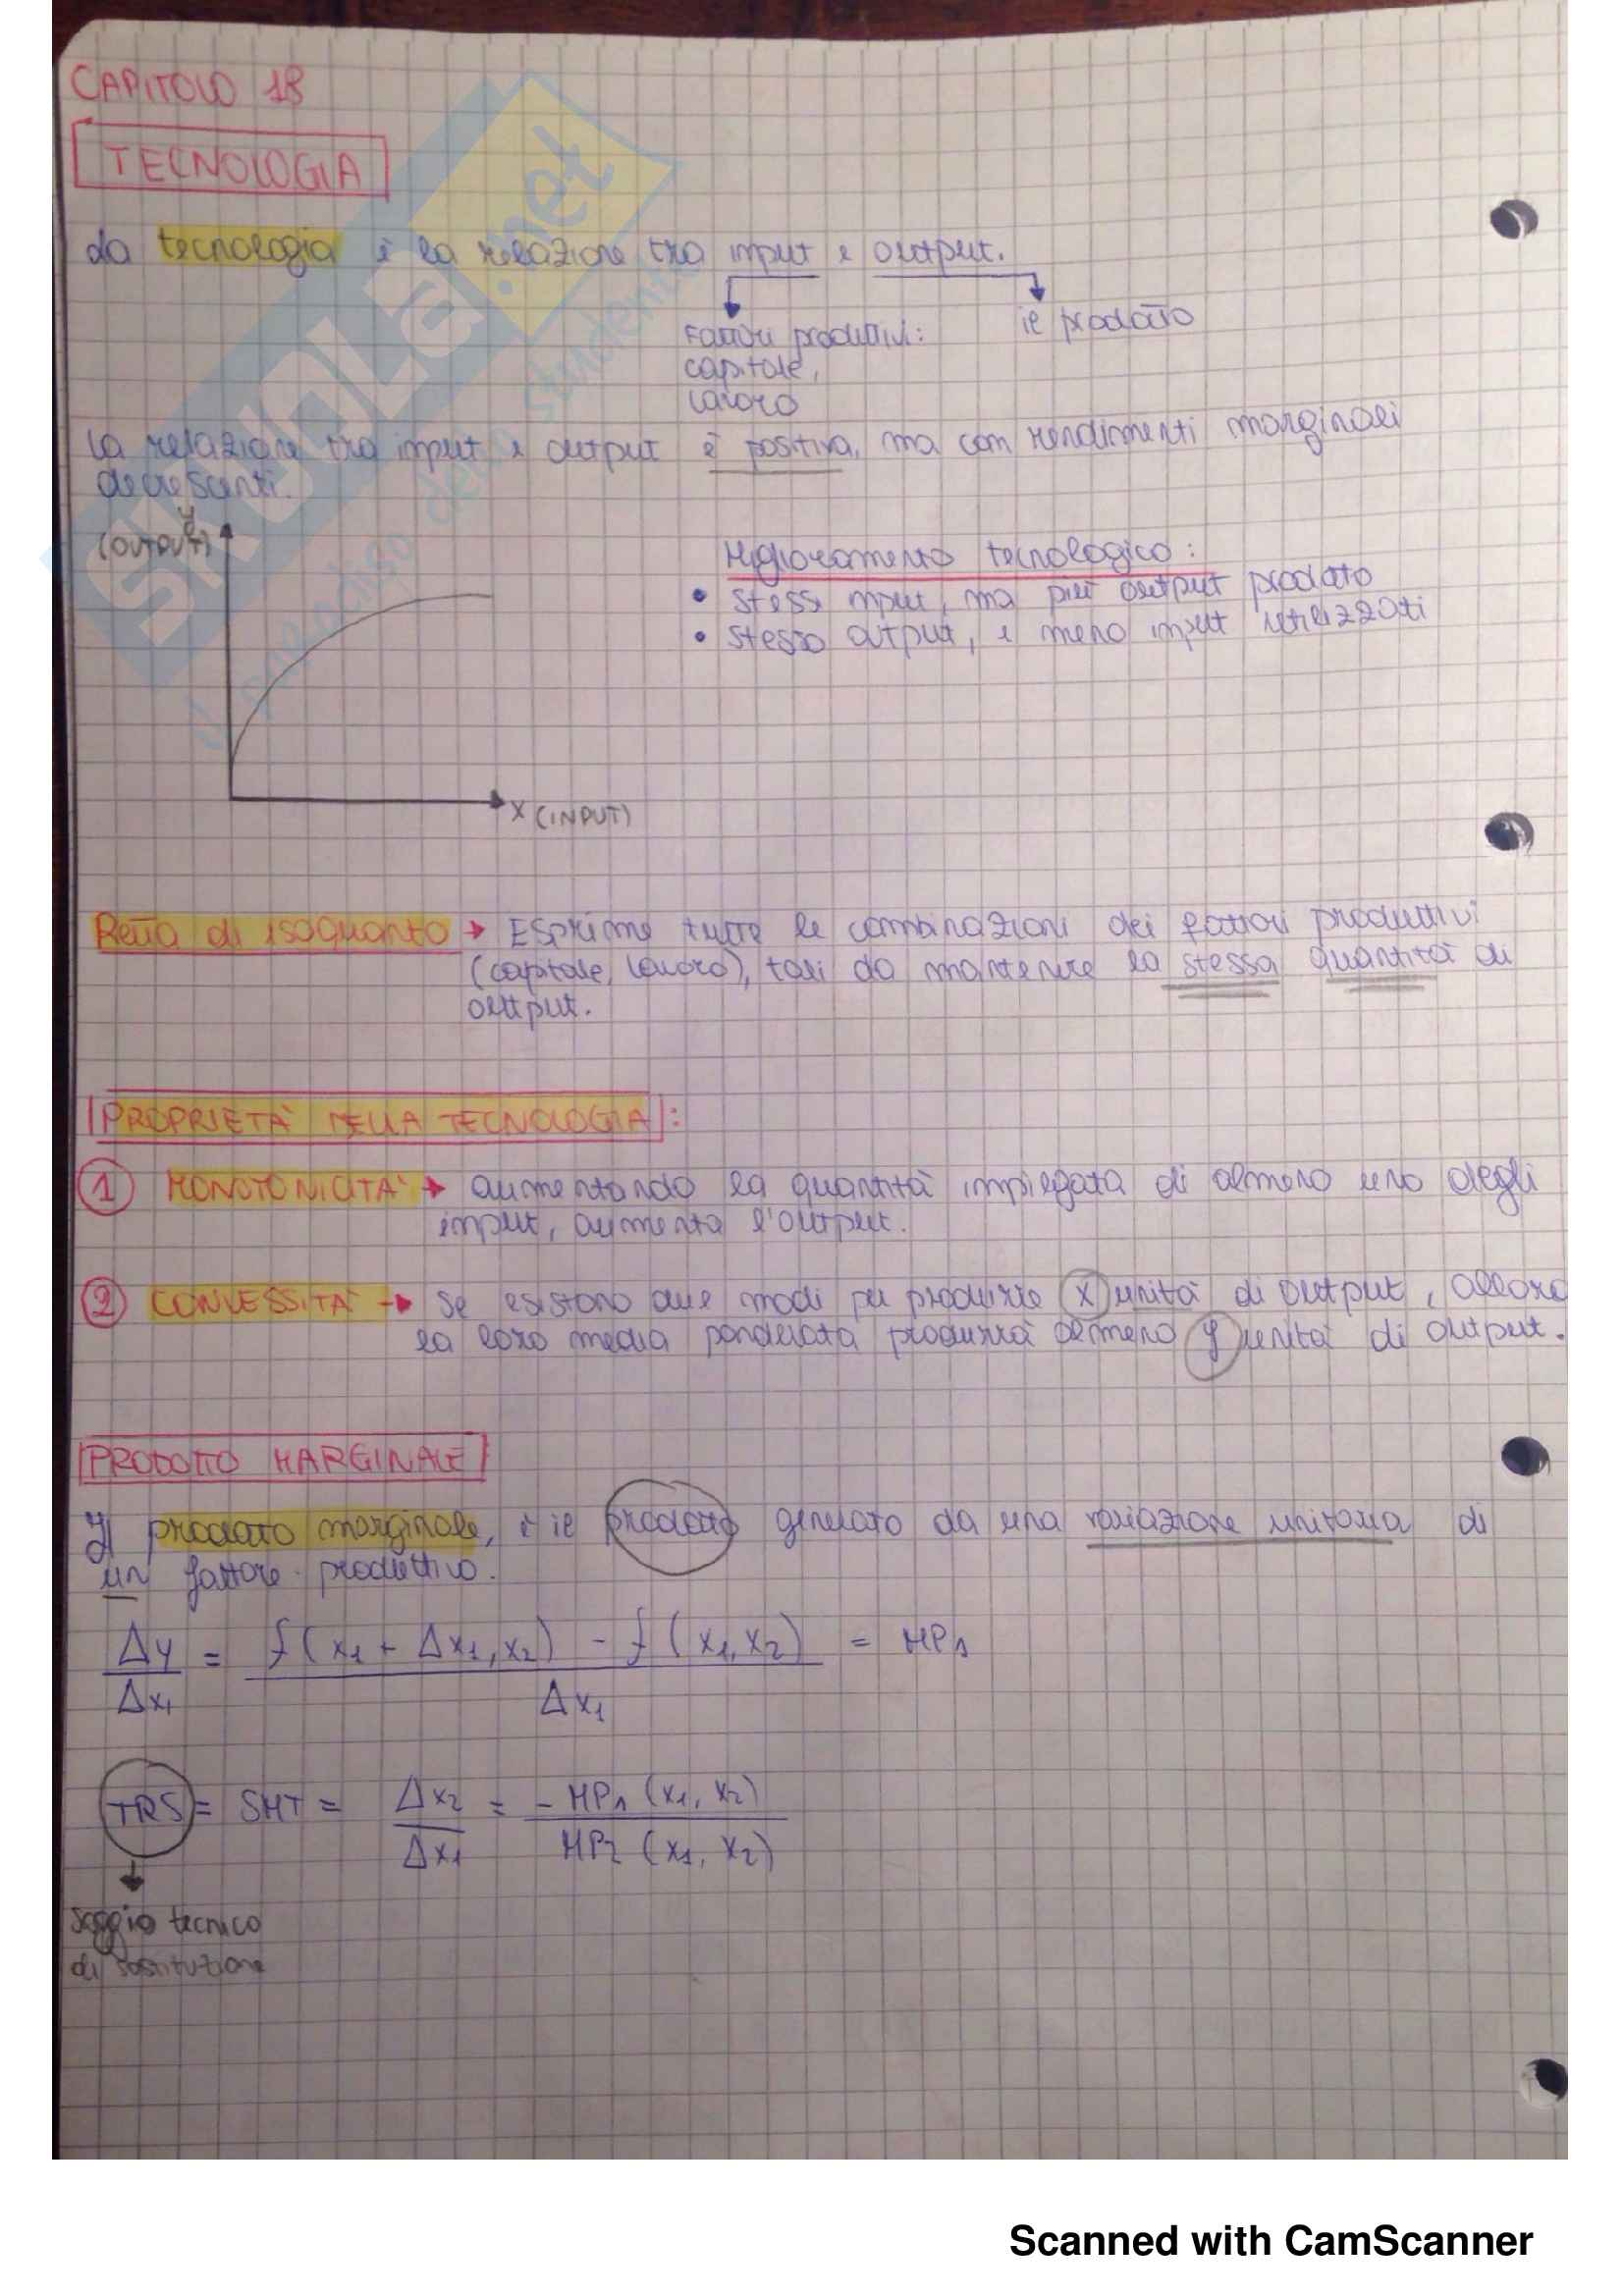 CAPITOLO 18
TECNOLOGIA
La tecnologia è la relazione tra input e output.
Fattori produttivi:
capitale,
lavoro
il prodotto
La relazione tra input e output è positiva, ma con rendimenti marginali
decrescenti.
y
(OUTPUT)
x (INPUT)
Miglioramento tecnologico:
• stessi input, ma più output prodotto
• stesso output, e meno input utilizzati
Retta di isoquanto → Esprime tutte le combinazioni dei fattori produttivi
(capitale, lavoro), tali da mantenere la stessa quantità di
output.
PROPRIETÀ DELLA TECNOLOGIA:
1 MONOTONICITÀ → aumentando la quantità impiegata di almeno uno degli
input, aumenta l'output.
2 CONVESSITÀ → Se esistono due modi per produrre x unità di output, allora
la loro media ponderata produrrà almeno y unità di output.
PRODOTTO MARGINALE
Il prodotto marginale, è il prodotto generato da una variazione unitaria di
un fattore produttivo.
Δy/Δx1 = f(x1 + Δx1, x2) - f(x1, x2) / Δx1 = MP1
TRS = SMT = Δx2/Δx1 = -MP1 (x1, x2) / MP2 (x1, x2)
saggio tecnico
di sostituzione
SKUOLa.net
il paradiso dello studente
Scanned with CamScanner